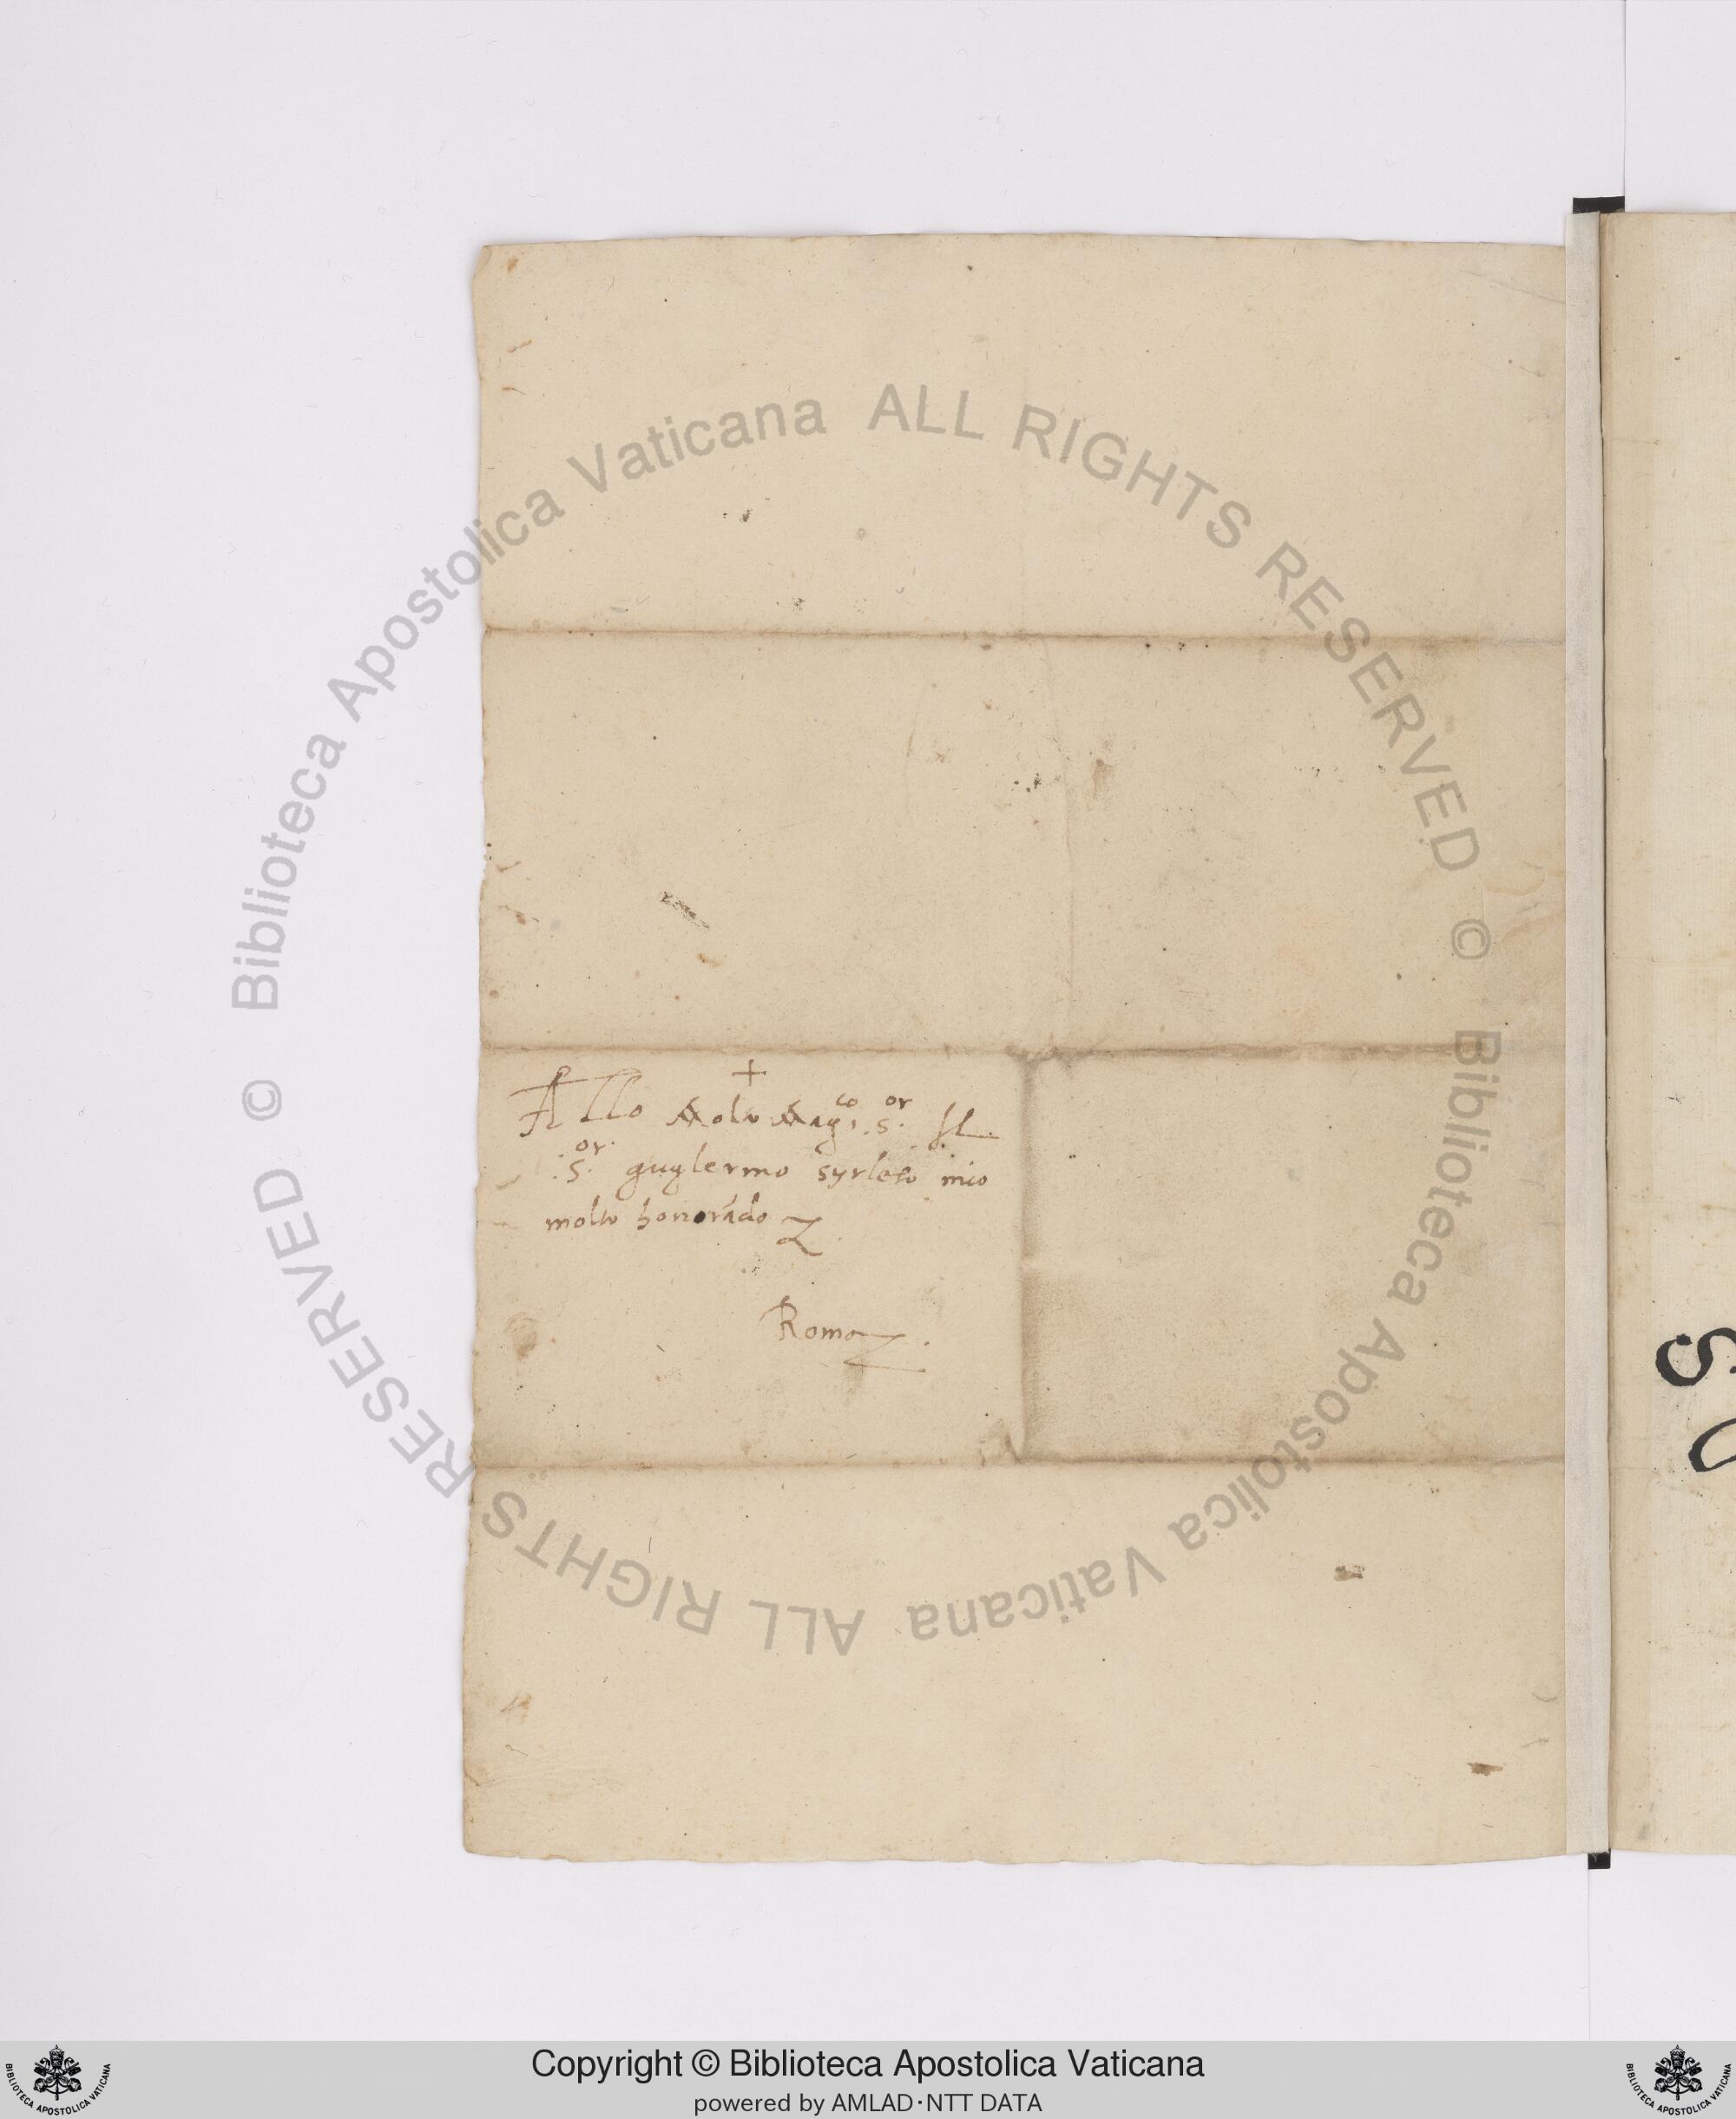 +
Allo Molto Mag.co S.or Il
S.or guglermo syrleto mio
molto honorado
Roma.
© Biblioteca Apostolica Vaticana ALL RIGHTS RESERVED
© Biblioteca Apostolica Vaticana ALL RIGHTS RESERVED
BIBLIOTECA APOSTOLICA VATICANA
Copyright © Biblioteca Apostolica Vaticana
powered by AMLAD·NTT DATA
BIBLIOTECA APOSTOLICA VATICANA